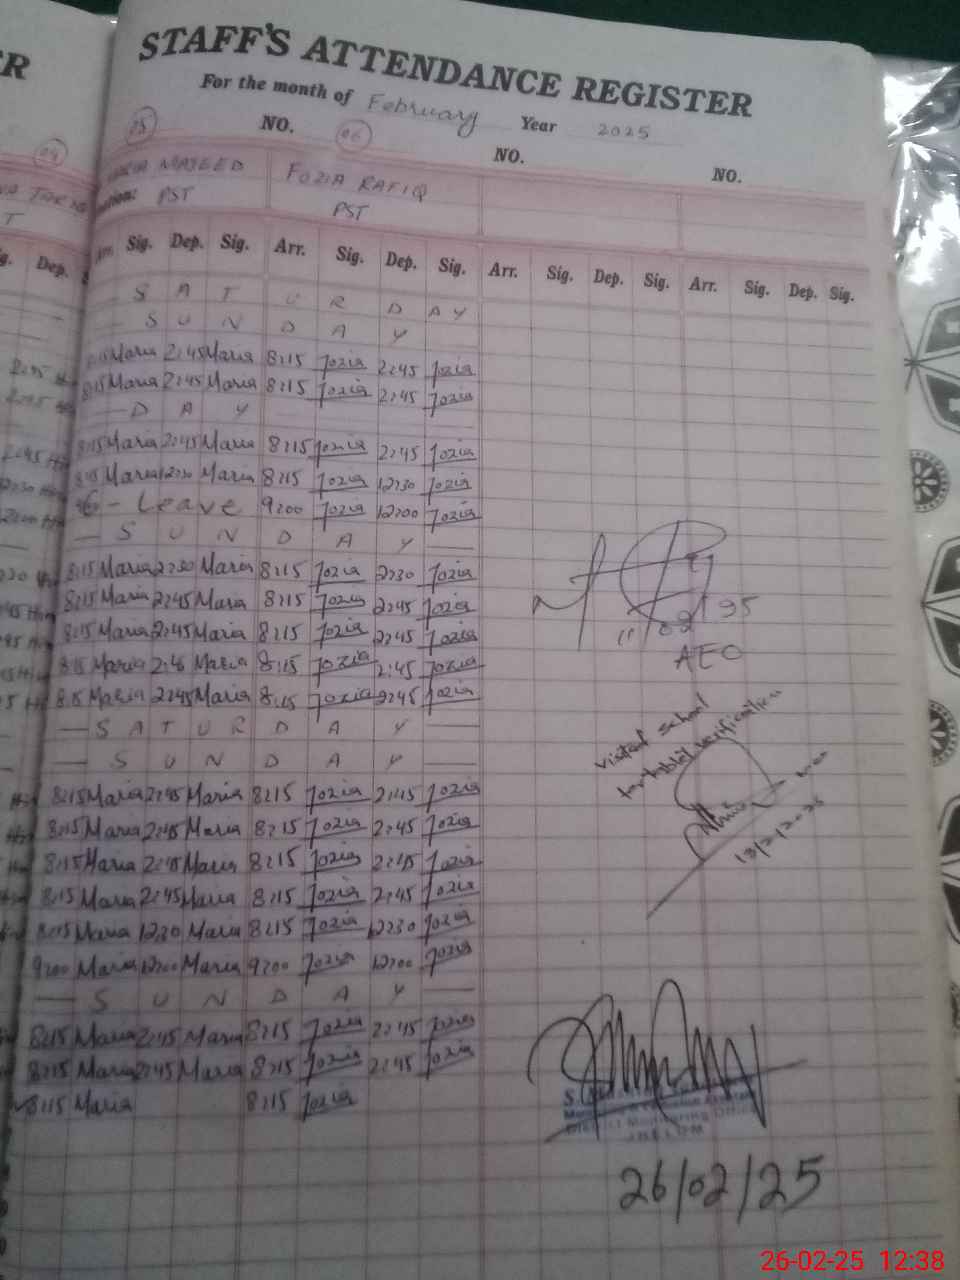 STAFF'S ATTENDANCE REGISTER
For the month of February Year 2025
05 NO. 06 NO. NO.
04 MAJEED FOZIA RAFIQ
PST PST
Dep. Arr. Sig. Dep. Sig. Arr. Sig. Dep. Sig. Arr. Sig. Dep. Sig. Arr. Sig. Dep. Sig.
— S A T U R D A Y
— S U N D A Y
8:15 Maria 2:45 Maria 8:15 Fozia 2:45 Fozia
8:15 Maria 2:45 Maria 8:15 Fozia 2:45 Fozia
— D A Y
8:15 Maria 2:45 Maria 8:15 Fozia 2:45 Fozia
8:15 Maria 12:30 Maria 8:15 Fozia 12:30 Fozia
- Leave 9:00 Fozia 12:00 Fozia
— S U N D A Y —
8:15 Maria 2:30 Maria 8:15 Fozia 2:30 Fozia
8:15 Maria 2:45 Maria 8:15 Fozia 2:45 Fozia
8:15 Maria 2:45 Maria 8:15 Fozia 2:45 Fozia
8:15 Maria 2:45 Maria 8:15 Fozia 2:45 Fozia
8:15 Maria 2:45 Maria 8:15 Fozia 2:45 Fozia
— S A T U R D A Y —
— S U N D A Y —
8:15 Maria 2:45 Maria 8:15 Fozia 2:45 Fozia
8:15 Maria 2:45 Maria 8:15 Fozia 2:45 Fozia
8:15 Maria 2:45 Maria 8:15 Fozia 2:45 Fozia
8:15 Maria 2:45 Maria 8:15 Fozia 2:45 Fozia
8:15 Maria 12:30 Maria 8:15 Fozia 12:30 Fozia
9:00 Maria 12:00 Maria 9:00 Fozia 12:00 Fozia
— S U N D A Y —
8:15 Maria 2:45 Maria 8:15 Fozia 2:45 Fozia
8:15 Maria 2:45 Maria 8:15 Fozia 2:45 Fozia
8:15 Maria 8:15 Fozia
AEO
visited school
for tablet verification
13/2/2025
District Monitoring Officer
26/02/25
26-02-25 12:38